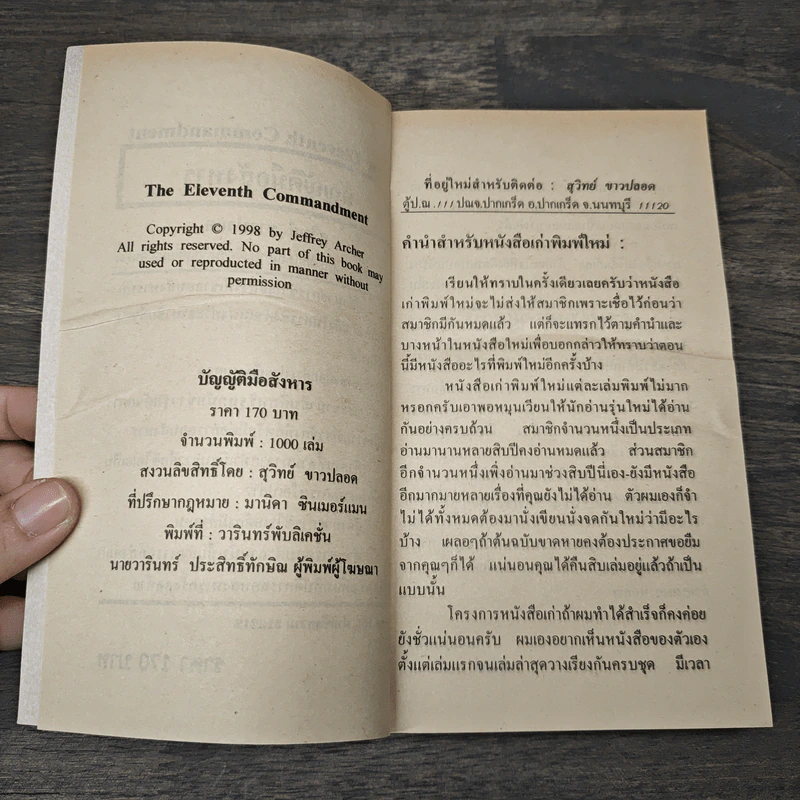 The Eleventh Commandment
Copyright © 1998 by Jeffrey Archer
All rights reserved. No part of this book may
used or reproduced in manner without
permission
บัญญัติมือสังหาร
ราคา 170 บาท
จำนวนพิมพ์ : 1000 เล่ม
สงวนลิขสิทธิ์โดย : สุวิทย์ ขาวปลอด
ที่ปรึกษากฎหมาย : มานิดา ซินเมอร์แมน
พิมพ์ที่ : วารินทร์พับลิเคชั่น
นายวารินทร์ ประสิทธิ์ทักษิณ ผู้พิมพ์ผู้โฆษณา
ที่อยู่ใหม่สำหรับติดต่อ : สุวิทย์ ขาวปลอด
ตู้ป.ณ .111 ปณจ.ปากเกร็ด อ.ปากเกร็ด จ.นนทบุรี 11120
คำนำสำหรับหนังสือเก่าพิมพ์ใหม่ :
เรียนให้ทราบในครั้งเดียวเลยครับว่าหนังสือ
เก่าพิมพ์ใหม่จะไม่ส่งให้สมาชิกเพราะเชื่อไว้ก่อนว่า
สมาชิกมีกันหมดแล้ว แต่ก็จะแทรกไว้ตามคำนำและ
บางหน้าในหนังสือใหม่เพื่อบอกกล่าวให้ทราบว่าตอน
นี้มีหนังสืออะไรที่พิมพ์ใหม่อีกครั้งบ้าง
หนังสือเก่าพิมพ์ใหม่แต่ละเล่มพิมพ์ไม่มาก
หรอกครับเอาพอหมุนเวียนให้นักอ่านรุ่นใหม่ได้อ่าน
กันอย่างครบถ้วน สมาชิกจำนวนหนึ่งเป็นประเภท
อ่านมานานหลายสิบปีคงอ่านหมดแล้ว ส่วนสมาชิก
อีกจำนวนหนึ่งเพิ่งอ่านมาช่วงสิบปีนี่เอง-ยังมีหนังสือ
อีกมากมายหลายเรื่องที่คุณยังไม่ได้อ่าน ตัวผมเองก็จำ
ไม่ได้ทั้งหมดต้องมานั่งเขียนนั่งจดกันใหม่ว่ามีอะไร
บ้าง เผลอๆถ้าต้นฉบับขาดหายคงต้องประกาศขอยืม
จากคุณๆก็ได้ แน่นอนคุณได้คืนสิบเล่มอยู่แล้วถ้าเป็น
แบบนั้น
โครงการหนังสือเก่าถ้าผมทำได้สำเร็จก็คงค่อย
ยังชั่วแน่นอนครับ ผมเองอยากเห็นหนังสือของตัวเอง
ตั้งแต่เล่มแรกจนเล่มล่าสุดวางเรียงกันครบชุด มีเวลา